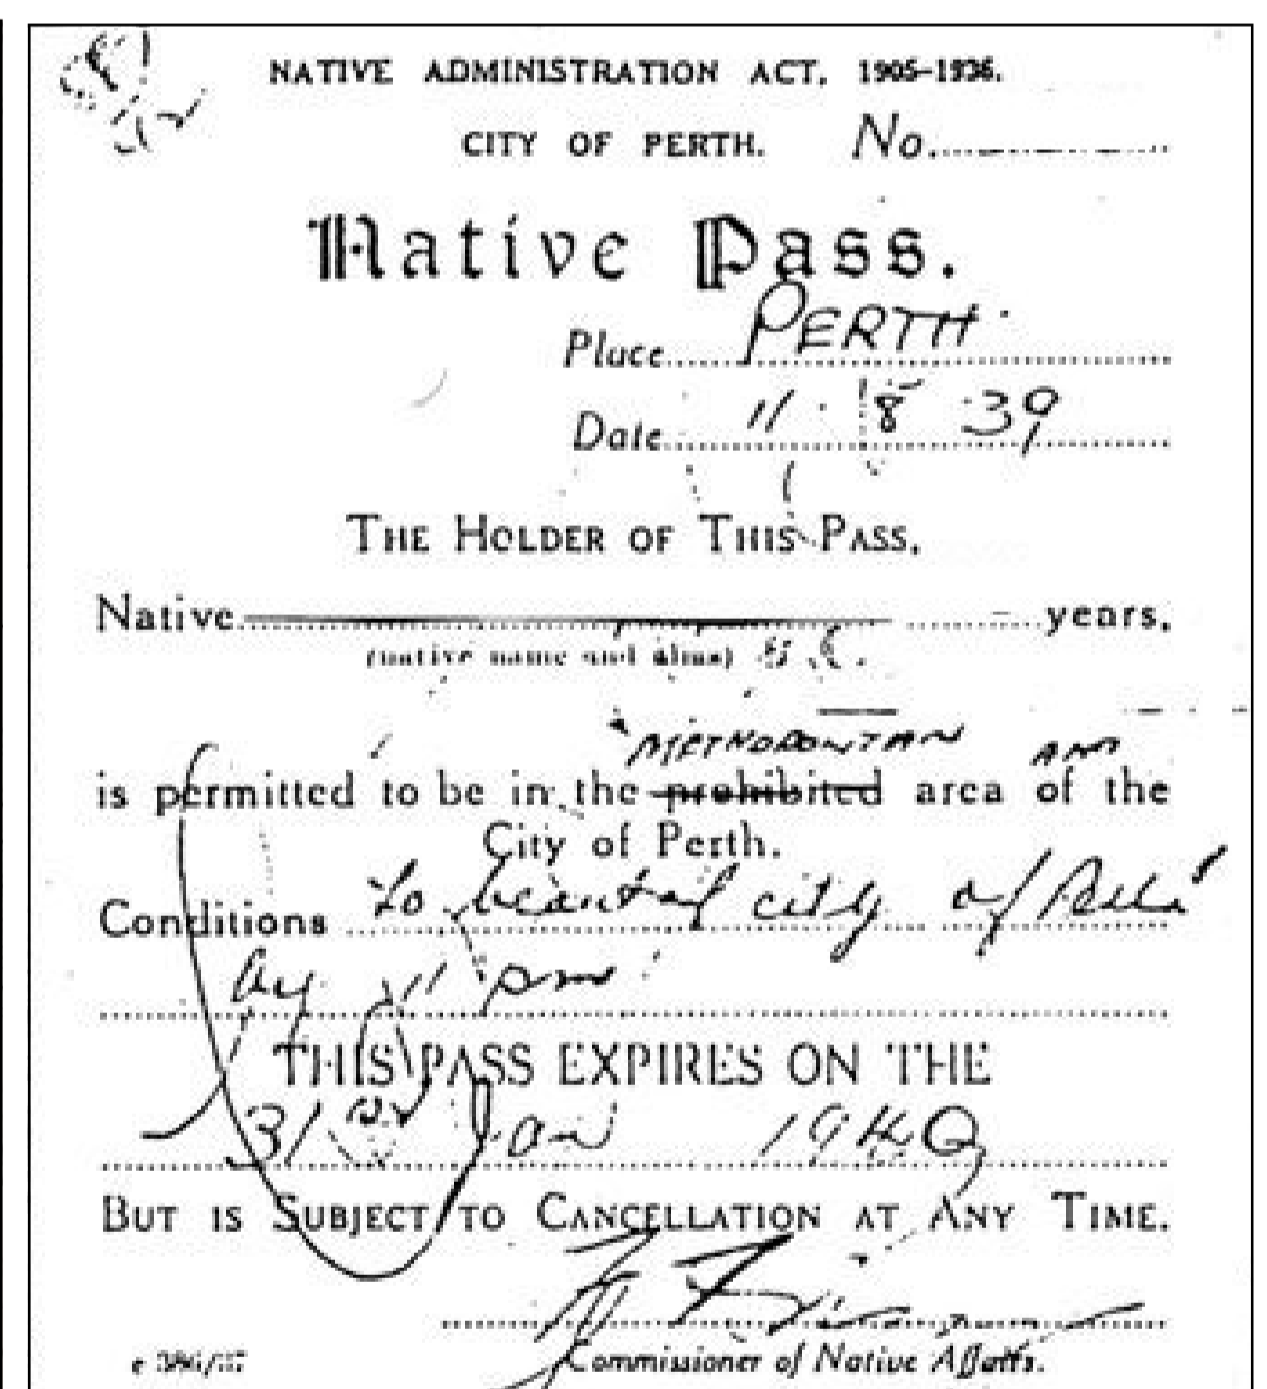 NATIVE ADMINISTRATION ACT, 1905–1936.
CITY OF PERTH. No.
Native Pass.
Place PERTH
Date 11 . 8 . 39
THE HOLDER OF THIS PASS,
Native years,
(native name and alias)
METROPOLITAN AND
is permitted to be in the prohibited area of the
City of Perth.
Conditions To be out of city of Perth
by 11 pm
THIS PASS EXPIRES ON THE
31 Jan 1940
BUT IS SUBJECT TO CANCELLATION AT ANY TIME.
Commissioner of Native Affairs.